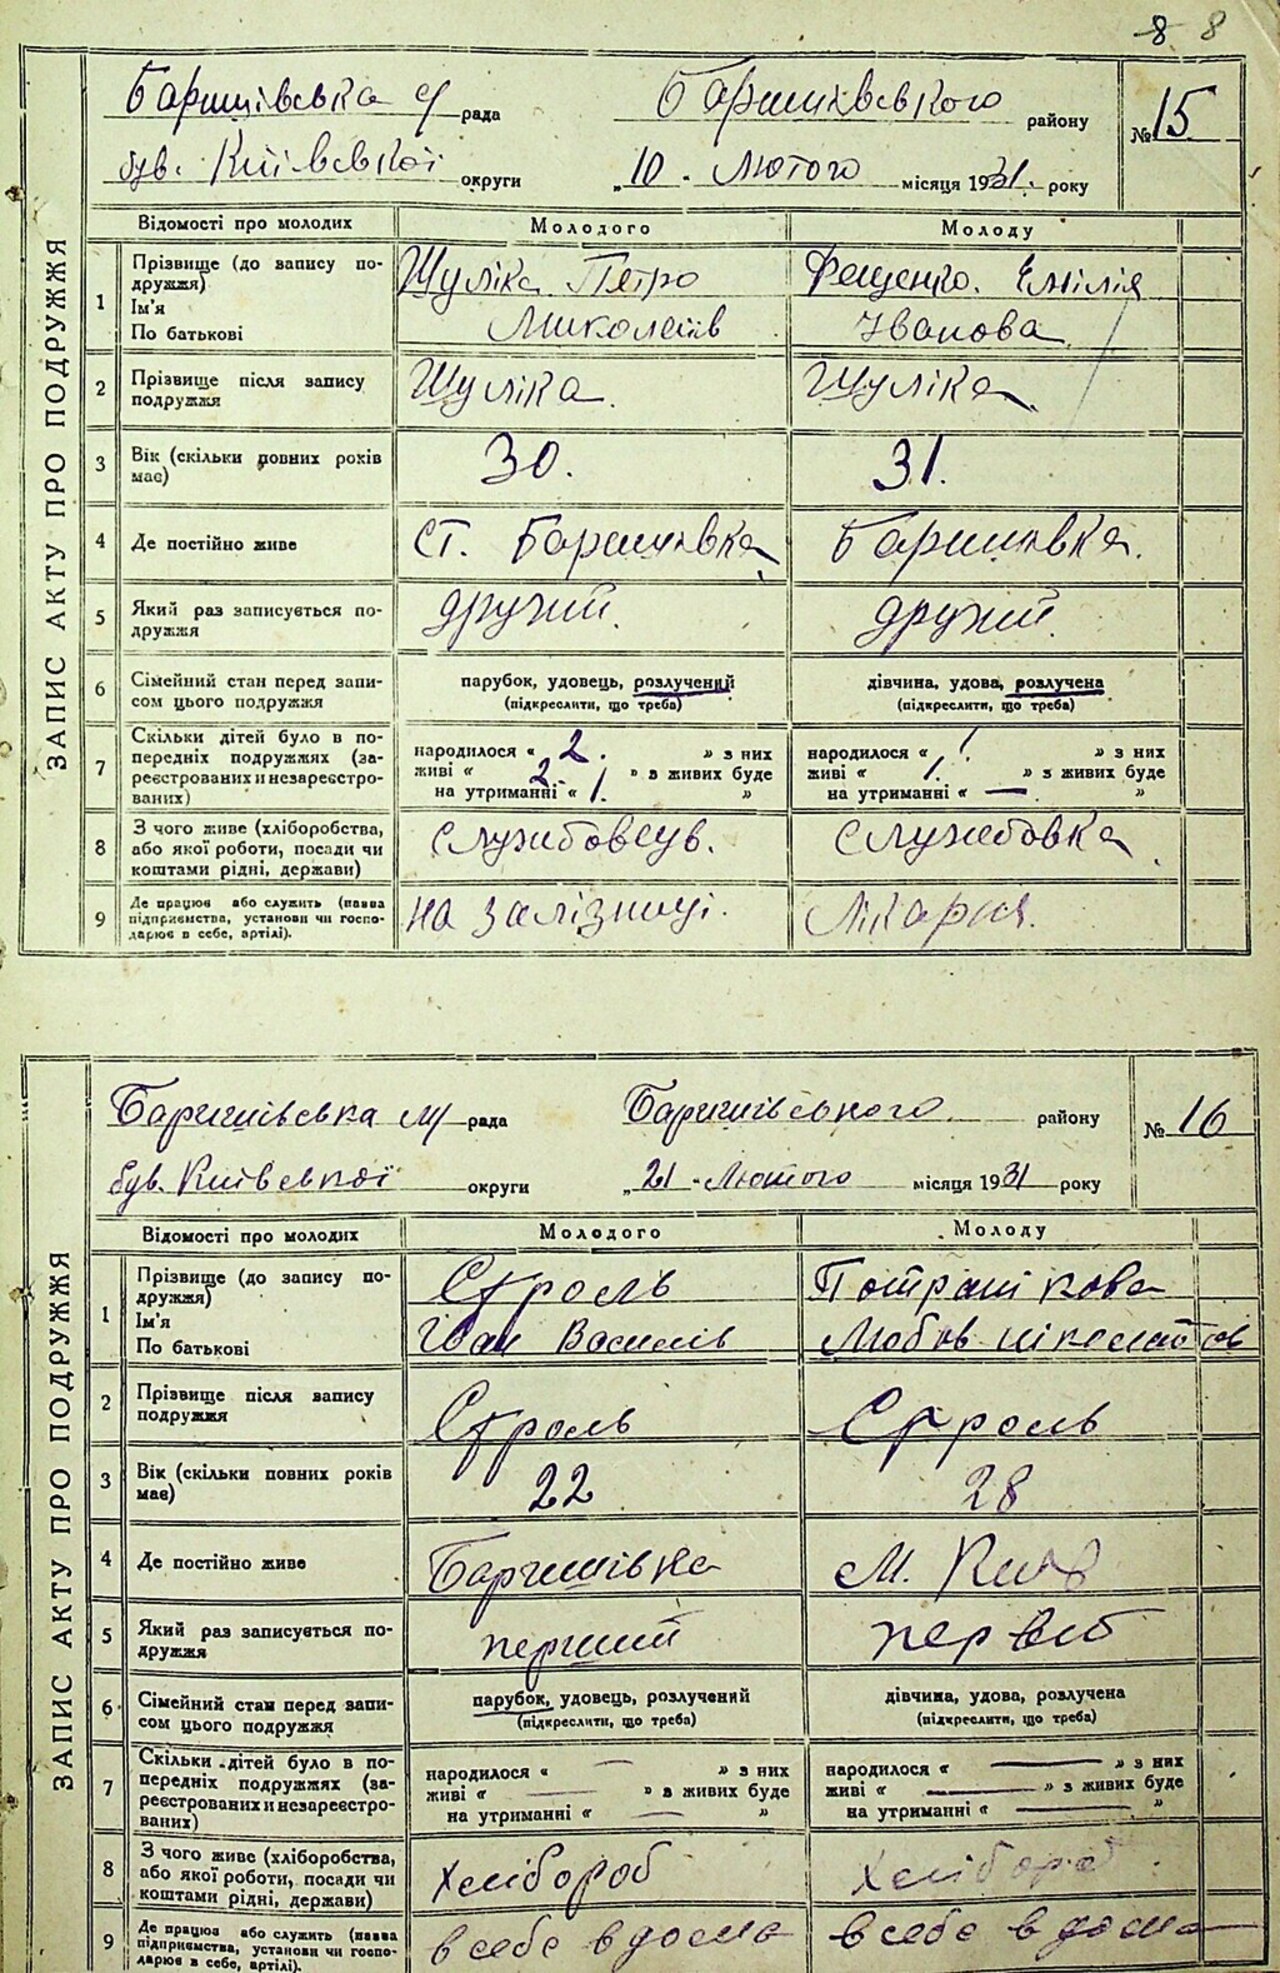 8 8
Баришівська с/рада Баришівського району № 15
був. Київської округи „10. Лютого місяця 1931. року
ЗАПИС АКТУ ПРО ПОДРУЖЖЯ
Відомості про молодих Молодого Молоду
1 Прізвище (до запису по-
дружжя)
Ім'я
По батькові
Шуліка Петро
Миколаїв
Фещенко. Емілія
Іванова
2 Прізвище після запису
подружжя
Шуліка. Шуліка.
3 Вік (скільки повних років
має)
30. 31.
4 Де постійно живе ст. Баришівка Баришівка.
5 Який раз записується по-
дружжя
другий. другий.
6 Сімейний стан перед запи-
сом цього подружжя
парубок, удовець, розлучений
(підкреслити, що треба)
дівчина, удова, розлучена
(підкреслити, що треба)
7 Скільки дітей було в по-
передніх подружжях (за-
реєстрованих и незареєстро-
ваних)
народилося « 2. » з них
живі « 2. » з живих буде
на утриманні « 1. »
народилося « 1 » з них
живі « 1. » з живих буде
на утриманні « — »
8 З чого живе (хліборобства,
або якої роботи, посади чи
коштами рідні, держави)
службовець. службовка.
9 Де працює або служить (назва
підприємства, установи чи госпо-
дарює в себе, артілі).
на залізниці. Лікарня.
Баришівська м/рада Баришівського району № 16
був. Київської округи „21 Лютого місяця 1931 року
ЗАПИС АКТУ ПРО ПОДРУЖЖЯ
Відомості про молодих Молодого Молоду
1 Прізвище (до запису по-
дружжя)
Ім'я
По батькові
Іван Василів
Любов
2 Прізвище після запису
подружжя
3 Вік (скільки повних років
має)
22 28
4 Де постійно живе Баришівка м. Київ
5 Який раз записується по-
дружжя
перший первий
6 Сімейний стан перед запи-
сом цього подружжя
парубок, удовець, розлучений
(підкреслити, що треба)
дівчина, удова, розлучена
(підкреслити, що треба)
7 Скільки дітей було в по-
передніх подружжях (за-
реєстрованих и незареєстро-
ваних)
народилося « — » з них
живі « — » з живих буде
на утриманні « — »
народилося « — » з них
живі « — » з живих буде
на утриманні « — »
8 З чого живе (хліборобства,
або якої роботи, посади чи
коштами рідні, держави)
хлібороб хлібороб
9 Де працює або служить (назва
підприємства, установи чи госпо-
дарює в себе, артілі).
в себе вдома в себе вдома